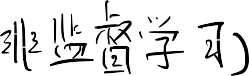 非监督学习